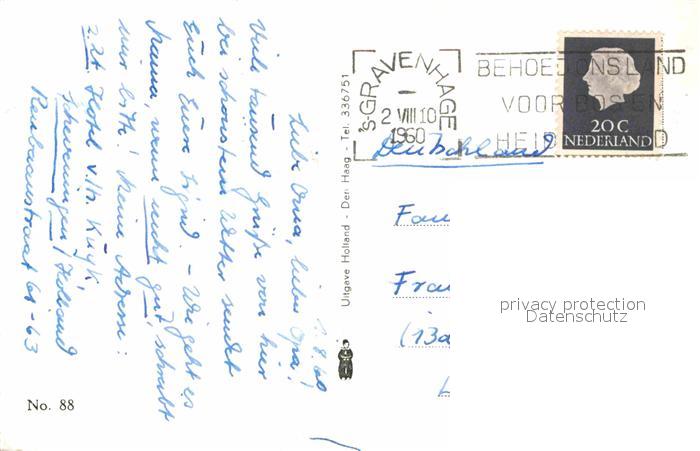 1.8.60
Liebe Oma, lieber Opa!
Viele tausend Grüße von hier
bei schönstem Wetter sendet
Euch Euer Sigrid. – Wie geht es
Mama, wenn nicht gut, schreibt
mir bitte! Meine Adresse:
z.Zt. Hotel v.d. Kuyk
Scheveningen / Holland
61-63
No. 88
Uitgave Holland - Den Haag - Tel. 336751
's-GRAVENHAGE
2 VIII 10
1960
BEHOED ONS LAND
VOOR BOS EN
HEIDEBRAND
20 C
NEDERLAND
Deutschland
Fam
Frau
(13a
privacy protection
Datenschutz